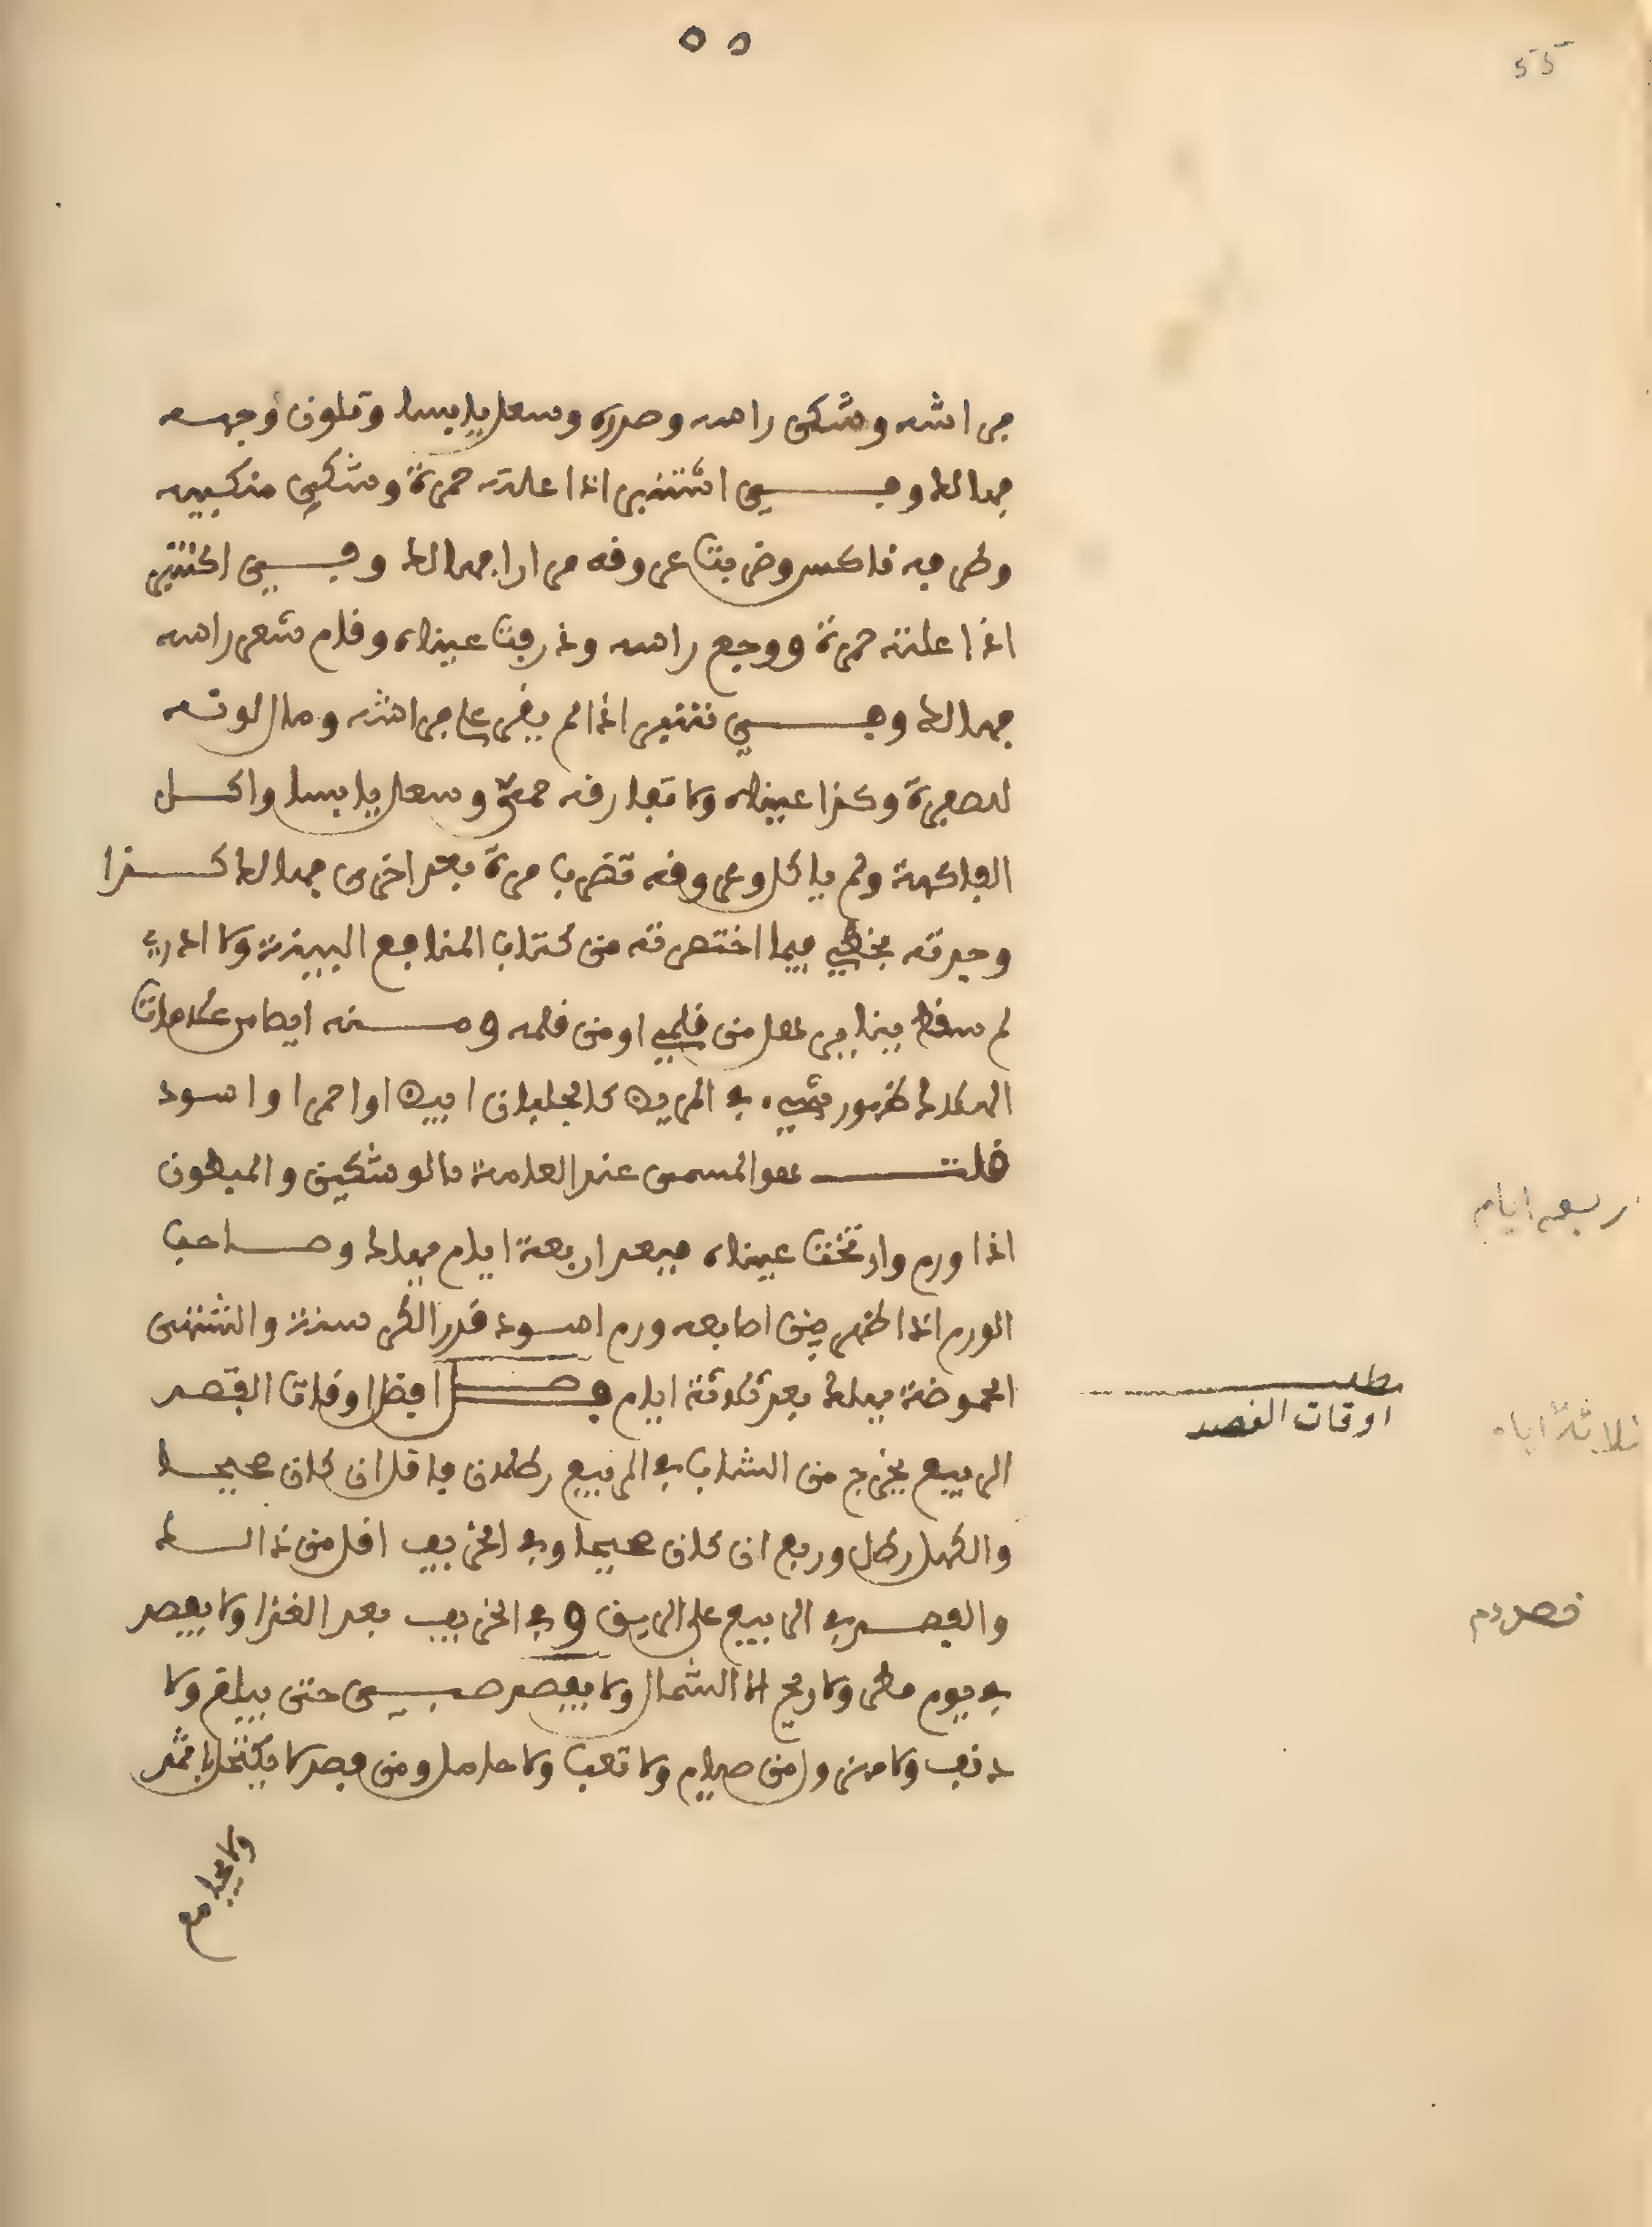 ٥٥
55
فراشه وشكى راسه وصدره وسعل يابسا وتلون وجهه
فهالك وفي اشتنبر اذا علته حمرة وشكى منكبيه
وظهره فانكسر وضربت عروقه مرارا فهالك وفي اكتنبر
اذا علته حمرة ووجع راسه وذرفت عيناه وقام شعر راسه
فهالك وفي نتنبر اذا لم يقر على فراشه ومال لونه
للصفرة وكذا عيناه ولا تفارقه حمى وسعل يابسا واكل
الفاكهة ولم ياكل وعروقه تضرب مرة بعد اخرى فهالك كذا
وجدته بخطي فيما اختصرته من كتاب المنافع البينة ولا ادري
لم سقط يناير هل من قلمي او من قلمه ومنه ايضا من علامات
الهلاك ظهور شيء في المريض كالجلبان ابيض او احمر او اسود
قلت هو المسمى عند العامة بالوشكين والمبطون
اذا ورم وانتفخت عيناه فبعد اربعة ايام يهلك وصاحب
الورم اذا ظهر ضمن اصابعه ورم اسود قدر الكرسنة واشتهى
الحموضة يهلك بعد ثلاثة ايام فصل افضل اوقات الفصد
الربيع يخرج من الشاب في الربيع رطلان فاقل ان كان صحيحا
والكهل رطل وربع ان كان صحيحا وفي الخريف اقل من ذالك
والفصد في الربيع على الريق وفي الخريف بعد الغذا ولا يفصد
في يوم مطر ولا ريح الا الشمال ولا يفصد صبي حتى يبلغ ولا
دنف ولا من صيام ولا تعب ولا حامل ومن فصد لا يكتحل باثمد
ولا يجامع
اربعه ايام
مطلب
اوقات الفصد
ثلاثة ايام
فصد دم